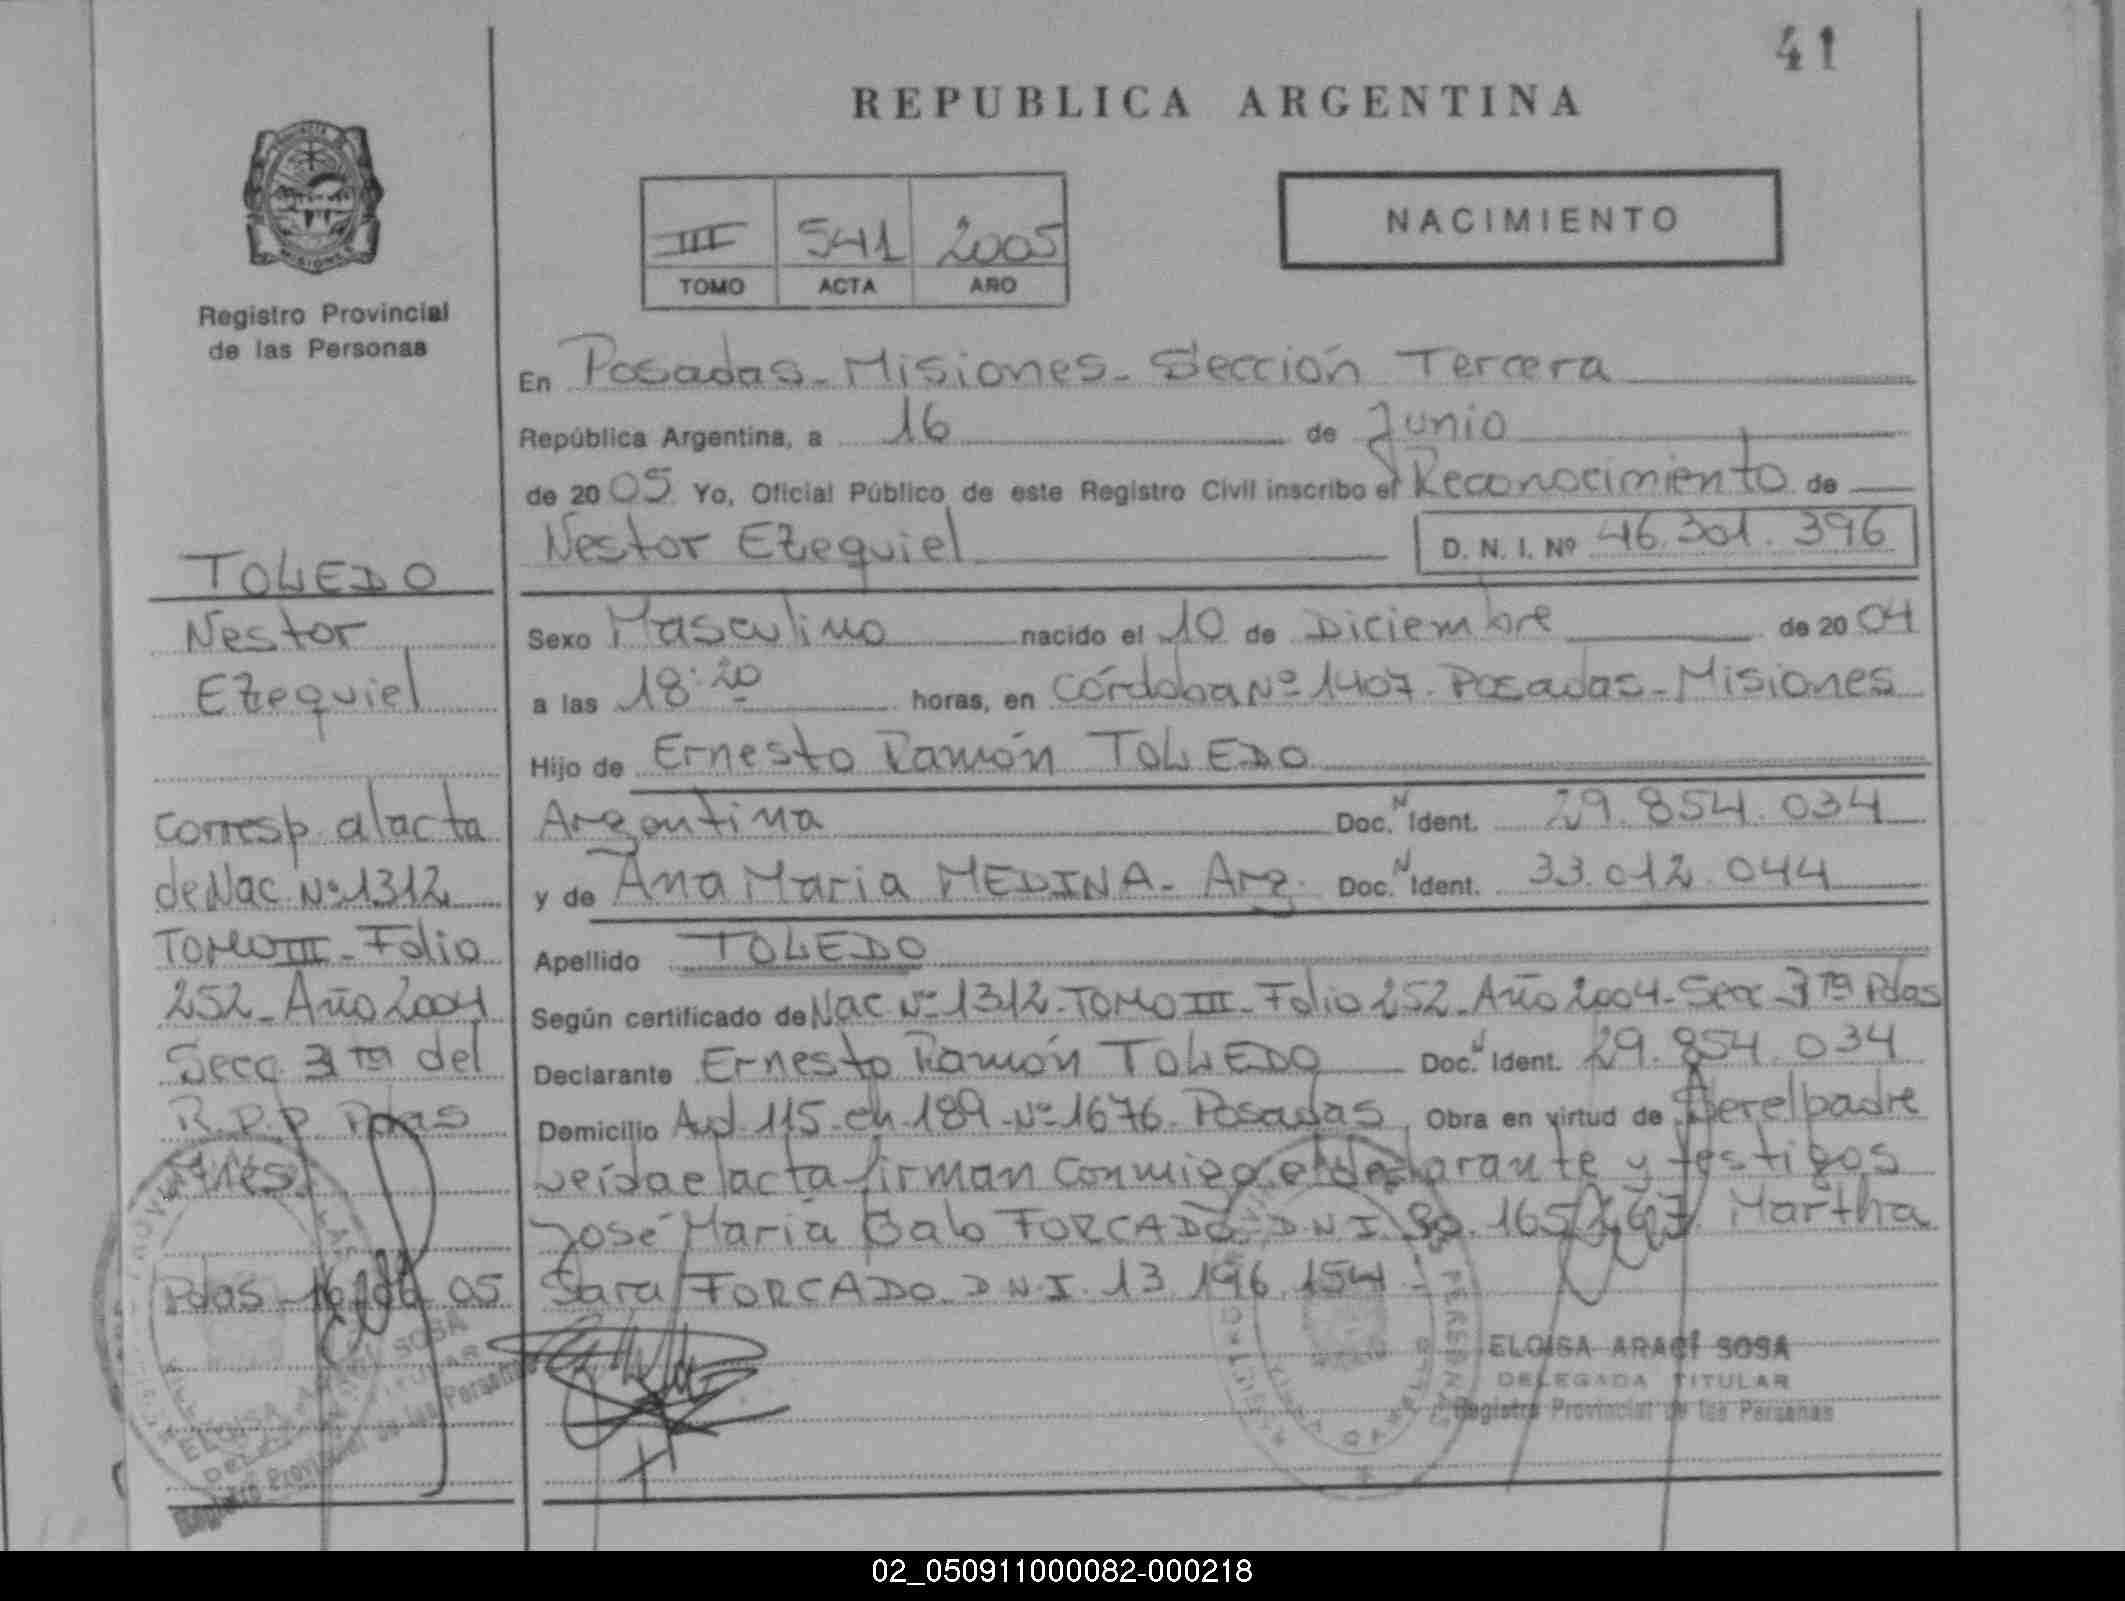 41
REPUBLICA ARGENTINA
NACIMIENTO
III 541 2005
TOMO ACTA AÑO
Registro Provincial
de las Personas
TOLEDO
Nestor
Ezequiel
corresp. al acta
de Nac. Nº 1312
TOMO III - Folio
252 - Año 2004
Secc. 3ra del
R.P.P. Pdas
Mnes.
Pdas - 16 05
En Posadas - Misiones - Sección Tercera
República Argentina, a 16 de Junio
de 2005 Yo, Oficial Público de este Registro Civil inscribo el Reconocimiento de
Nestor Ezequiel D. N. I. Nº 46.301.396
Sexo Masculino nacido el 10 de Diciembre de 2004
a las 18:20 horas, en Córdoba Nº 1407. Posadas - Misiones
Hijo de Ernesto Ramón TOLEDO
Argentina Doc. N Ident. 29.854.034
y de Ana Maria MEDINA - Arg. Doc. N Ident. 33.012.044
Apellido TOLEDO
Según certificado de Nac Nº 1312 - TOMO III - Folio 252 - Año 2004 - Secc 3ra Pdas
Declarante Ernesto Ramón TOLEDO Doc. N Ident. 29.854.034
Domicilio Avd. 115 - ch - 189 - Nº 1676. Posadas Obra en virtud de ser el padre
leída el acta firman conmigo el declarante y testigos
José María Galo FORCADO - D.N.I. Martha
Sara FORCADO D.N.I. 13.196.154 -
ELOISA ARACÍ SOSA
DELEGADA TITULAR
Registro Provincial de las Personas
ELOISA ARACÍ SOSA
DELEGADA TITULAR
Registro Provincial de las Personas
02_050911000082-000218